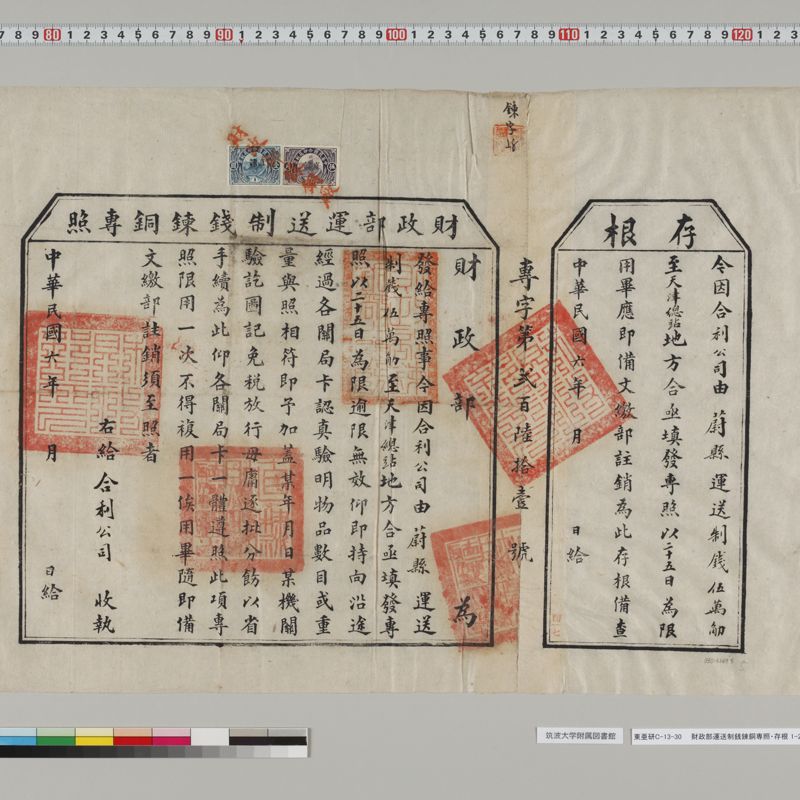 存根
令因合利公司由蔚縣運送制錢伍萬觔
至天津總站地方合亟填發專照以二十五日為限
用畢應即備文繳部註銷為此存根備查
中華民國六年 月 日給
專字第貳百陸拾壹號
財政部運送制錢鍊銅專照
財政部為
發給專照事今因合利公司由蔚縣運送
制錢伍萬觔至天津總站地方合亟填發專
照以二十五日為限逾限無效仰即持向沿途
經過各關局卡認真驗明物品數目或重
量與照相符即予加蓋某年月日某機關
驗訖圖記免稅放行毋庸逐批分飭以省
手續為此仰各關局卡一體遵照此項專
照限用一次不得複用一俟用畢隨即備
文繳部註銷須至照者
右給合利公司 收執
中華民國六年 月 日給
7 8 9 80 1 2 3 4 5 6 7 8 9 90 1 2 3 4 5 6 7 8 9 100 1 2 3 4 5 6 7 8 9 110 1 2 3 4 5 6 7 8 9 120 1 2 3
筑波大学附属図書館
東亜研C-13-30 財政部運送制銭鍊銅専照・存根 1-2